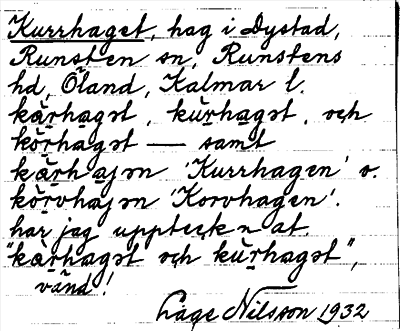 Kurrhaget, hag i Dystad,
Runsten sn, Runstens
hd, Öland, Kalmar l.
kàrhagət, kùrhagət, och
kòrhagət — samt
kàrhajən 'Kurrhagen' o.
kòrvhajən 'Korvhagen'.
har jag uppteckn at.
"kàrhagət och kùrhagət",
vänd!
Lage Nilsson 1932